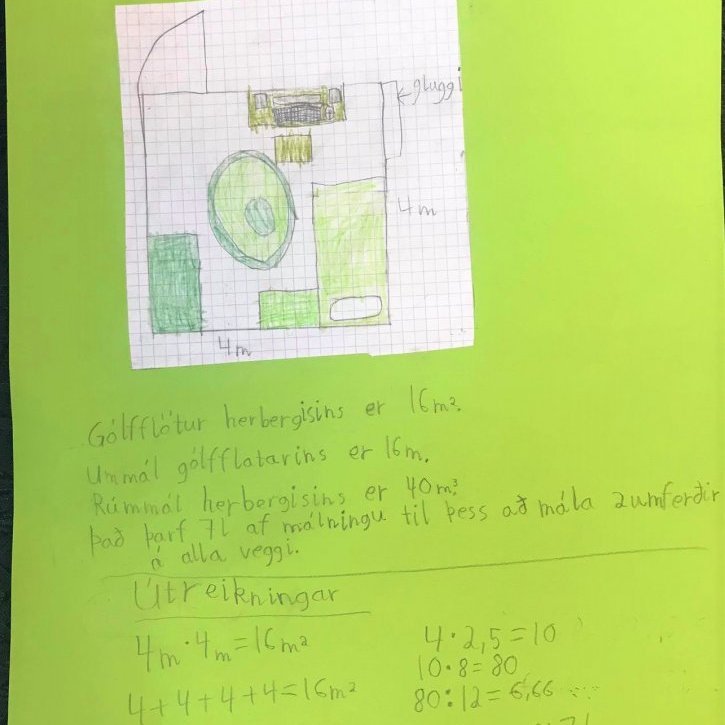 gluggi
4m
4m
Gólfflötur herbergisins er 16m².
Ummál gólfflatarins er 16m.
Rúmmál herbergisins er 40m³.
Það þarf 7l af málningu til þess að mála 2umferðir
á alla veggi.
Útreikningar
4m·4m=16m²
4·2,5=10
10·8=80
4+4+4+4=16m²
80:12=6,66...